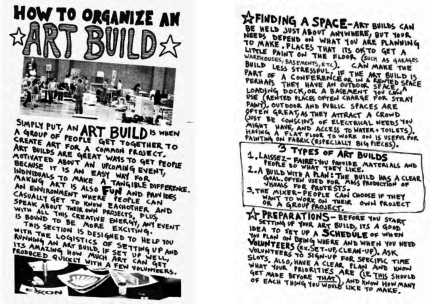 HOW TO ORGANIZE AN
ART BUILD
SIMPLY PUT, AN ART BUILD IS WHEN
A GROUP OF PEOPLE GET TOGETHER TO
CREATE ART FOR A COMMON PROJECT.
ART BUILDS ARE GREAT WAYS TO GET PEOPLE
MOTIVATED ABOUT AN UPCOMING EVENT,
BECAUSE IT IS AN EASY WAY FOR
INDIVIDUALS TO MAKE A TANGIBLE DIFFERENCE.
MAKING ART IS ALSO FUN AND PROVIDES
AN ENVIRONMENT WHERE PEOPLE CAN
CASUALLY GET TO KNOW EACHOTHER, AND
SPEAK ABOUT THEIR OWN PROJECTS, PLUS
WITH ALL THIS CREATIVE ENERGY, ANY EVENT
IS BOUND TO BE MORE EXCITING.
THIS SECTION IS DESIGNED TO HELP YOU
WITH THE LOGISTICS OF SETTING UP AND
RUNNING AN ART BUILD. IF SET UP WELL,
ITS AMAZING HOW MUCH ART CAN GET
PRODUCED QUICKLY WITH A FEW VOLUNTEERS.
EXXON
FINDING A SPACE-ART BUILDS CAN
BE HELD JUST ABOUT ANYWHERE, BUT YOUR
NEEDS DEPEND ON WHAT YOU ARE PLANNING
TO MAKE. PLACES THAT IT'S OK TO GET A
LITTLE PAINT ON THE FLOOR, (SUCH AS GARAGES
WAREHOUSES, BASEMENTS, ETC), CAN MAKE THE
BUILD LESS STRESSFUL. IF THE ART BUILD IS
PART OF A CONFERENCE, OR IN A RENTED SPACE
PERHAPS THEY HAVE AN OUTDOOR SPACE,
LOADING DOCK, OR A BASEMENT YOU CAN
USE (RENTED PLACES OFTEN CHARGE FOR STRAY
PAINT). OUTDOOR AND PUBLIC SPACES ARE
OFTEN GREAT, AS THEY ATTRACT A CROWD
(JUST BE CONSCIOUS OF ELECTRICAL NEEDS YOU
MIGHT HAVE, AND ACCESS TO WATER + TOILETS).
HAVING A FLAT FLOOR TO WORK ON IS USEFUL FOR
PAINTING ON FABRIC (ESPECIALLY BIG PIECES).
3 TYPES OF ART BUILDS
1. LAISSEZ-FAIRE: YOU PROVIDE MATERIALS AND
PEOPLE DO WHAT THEY LIKE.
2. A BUILD WITH A PLAN: THE BUILD HAS A CLEAR
GOAL. OFTEN USED FOR MASS PRODUCTION OF
VISUALS FOR PROTESTS.
3. THE MIXER-PEOPLE CAN CHOOSE IF THEY
WANT TO WORK ON THEIR OWN PROJECT
OR A GROUP PROJECT.
PREPARATIONS- BEFORE YOU START
SETTING UP YOUR ART BUILD, ITS A GOOD
IDEA TO SET UP A SCHEDULE OF WHEN
YOU PLAN ON BEING WHERE AND WHEN YOU NEED
VOLUNTEERS (EX. SET-UP, CLEAN-UP). ASK
VOLUNTEERS TO SIGN-UP FOR SPECIFIC TIME
SLOTS. ALSO, HAVE A CLEAR PLAN AND KNOW
WHAT YOUR PRIORITIES ARE (IE THIS SHOULD
GET MADE BEFORE THAT), AND KNOW HOW MANY
OF EACH THING YOU WOULD LIKE TO MAKE.